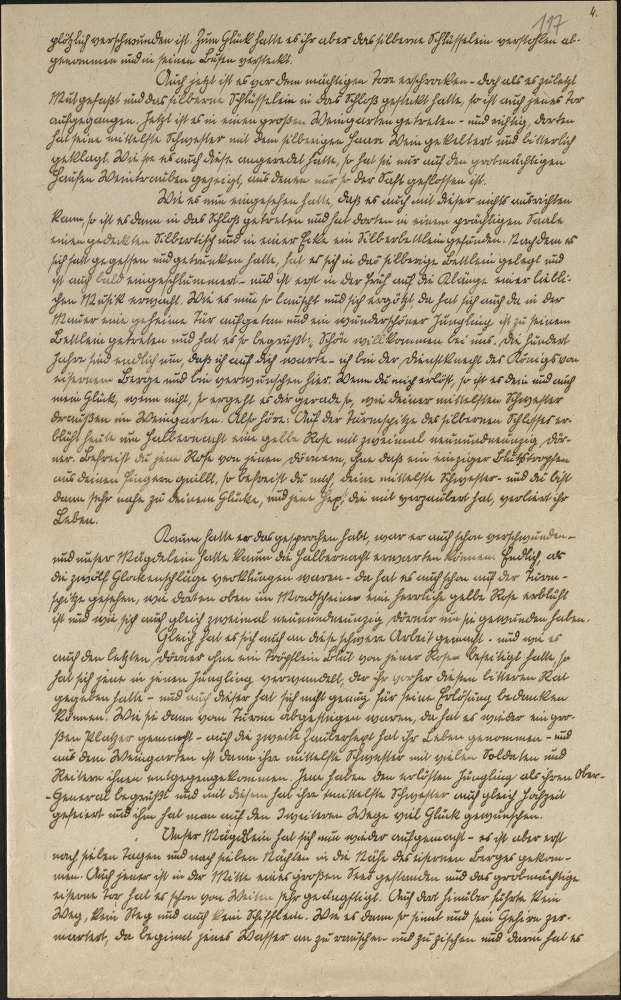 4.
117
plötzlich verschwunden ist. Zum Glück hatte es ihr aber das silberne Schlüsselein verstohlen ab-
genommen und in seinen Busen versteckt.
Auch jetzt ist es vor dem mächtigen Tore erschrocken - doch als es zuletzt
Mut gefaßt und das silberne Schlüsselein in das Schloß gesteckt hatte, so ist auch jenes Tor
aufgegangen. Jetzt ist es in einen großen Weingarten getreten - und richtig, dorten
hat seine mittelste Schwester mit dem silberigen Haar Wein gekeltert und bitterlich
geklagt. Wie sie es auch diese angeredet hatte, so hat sie nur auf den großmächtigen
Haufen Weintrauben gezeigt, aus denen nur so der Saft geflossen ist.
Wie es nun eingesehen hatte, daß es auch mit dieser nichts ausrichten
kann, so ist es dann in das Schloß getreten und hat dorten in einem prächtigen Saale
einen gedeckten Silbertisch und in einer Ecke ein Silberbettlein gefunden. Nachdem es
sich satt gegessen und getrunken hatte, hat es sich in das silberige Bettlein gelegt und
ist auch bald eingeschlummert - und ist erst in der Früh auf die Klänge einer liebli-
chen Musik erwacht. Wie es nun so lauscht und sich ergötzt da hat sich auch da in der
Mauer eine geheime Tür aufgetan und ein wunderschöner Jüngling ist zu seinem
Bettlein getreten und hat es so begrüßt: Schön willkommen bei uns. Die hundert
Jahre sind endlich um, daß ich auf dich warte - ich bin der Dienstknecht des Königs vom
eisernen Berge und bin verwunschen hier. Wenn du mich erlöst, so ist es dein und auch
mein Glück, wenn nicht, so ergeht es dir gerade so, wie deiner mittelsten Schwester
draußen im Weingarten. Also höre: Auf der Turmspitze des silbernen Schlosses er-
blüht heute um Halbernacht eine gelbe Rose mit zweimal neunundneunzig Dör-
ner. Befreist du jene Rose von jenen Dörnern, ohne daß ein einziger Blutstropfen
aus deinen Fingern quillt, so befreist du mich, deine mittelste Schwester - und du bist
dann sehr nahe zu deinem Glücke, und jene Hex, die mich verzaubert hat, verliert ihr
Leben.
Kaum hatte er das gesprochen gehabt, war er auch schon verschwunden -
und unser Mägdelein hatte kaum die Halbernacht erwarten können. Endlich, als
die zwölf Glockenschläge verklungen waren - da hat es auch schon auf der Turm-
spitze gesehen, wie dorten oben im Mondscheine eine herrliche gelbe Rose erblüht
ist und wie sich auch gleich zweimal neunundneunzig Dörner um sie gewunden haben.
Gleich hat es sich auch an diese schwere Arbeit gemacht - und wie es
auch den letzten Dörner ohne ein Tröpflein Blut von jener Rose beseitigt hatte, so
hat sich jene in jenen Jüngling verwandelt, der ihr vorher diesen bitteren Rat
gegeben hatte - und auch dieser hat sich nicht genug für seine Erlösung bedanken
können. Wie sie dann vom Turme abgestiegen waren, da hat es wieder ein gro-
ßen Klatzer gemacht - auch die zweite Zauberhexe hat ihr Leben genommen - und
aus dem Weingarten ist dann ihre mittelste Schwester mit vielen Soldaten und
Reitern ihnen entgegengekommen. Jene haben den erlösten Jüngling als ihren Ober-
General begrüßt und mit diesem hat ihre mittelste Schwester auch gleich Hochzeit
gefeiert und ihm hat man auf den zweiteren Wege viel Glück gewunschen.
Unser Mägdlein hat sich nun wieder aufgemacht - es ist aber erst
nach vielen Tagen und nach vielen Nächten in die Nähe des eisernen Berges gekom-
men. Auch jener ist in der Mitte eines großen Sees gestanden und das großmächtige
eiserne Tor hat es schon von Weiten sehr geängstigt. Auch dort hinüber führte kein
Weg, kein Steg und auch kein Schifflein. Wie es dann so sinnt und sein Gehirn zer-
martert, da beginnt jenes Wasser an zu rauschen und zu zischen und dann hat es